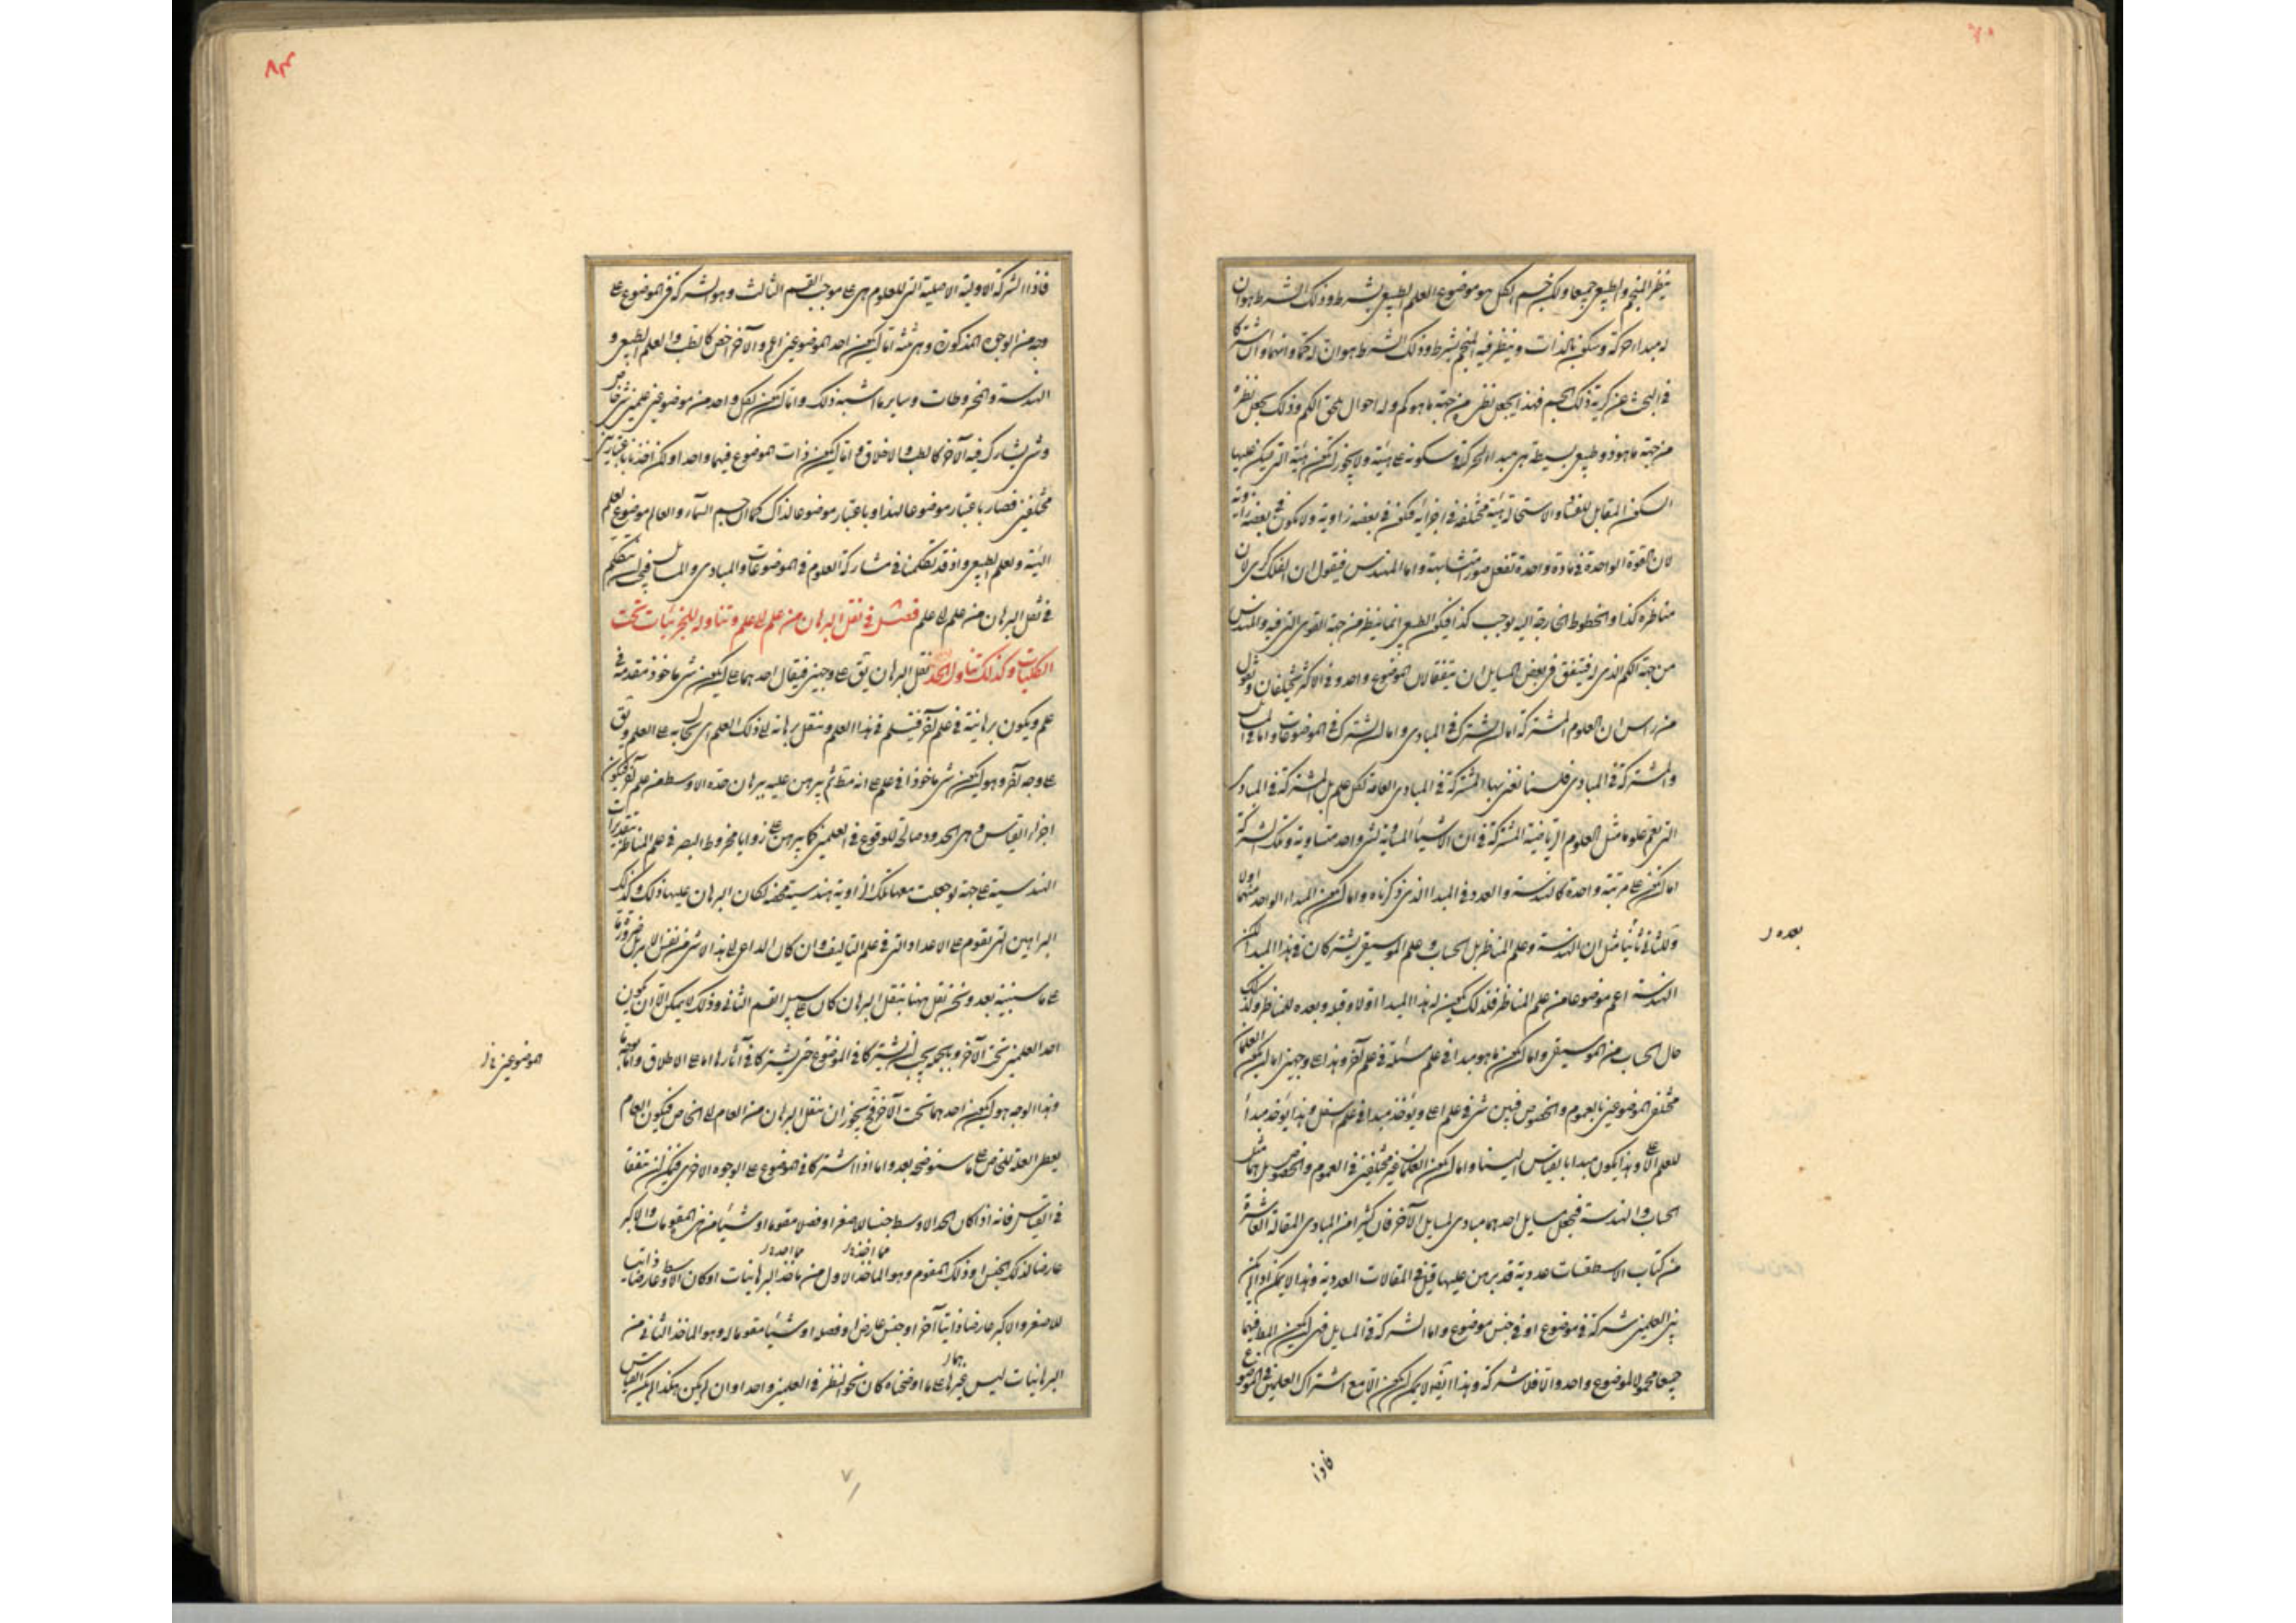 ينظر المنجم والطبيعي جميعا ولكن جسم الكل هو موضوع العلم الطبيعي بشرط وذلك الشرط هو ان
له مبدا حركة وسكون بالذات وينظر فيه المنجم بشرط وذلك الشرط هو ان له كما وانهما وان اشتركا
في البحث عن كرية ذلك الجسم فهذا يجعل نظره من جهة ما هو كم وله احوال تلحق الكم وذلك يجعل نظره
من جهة ما هو ذو طبيعة بسيطة هي مبدا حركته وسكونه على هيئته ولا يجوز ان تكون هيئته التي يسكن عليها
السكون المقابل للفساد والاستحالة هيئة مختلفة في اجزائه فتكون في بعضه زاوية ولا يكون في بعضه زاوية
لان القوة الواحدة في مادة واحدة تفعل صورة متشابهة واما المهندس فيقول ان الفلك كرى لان
مناظره كذا والخطوط الخارجة اليه توجب كذا فيكون الطبيعي انما ينظر من جهة القوى التي فيه والمهندس
من جهة الكم الذي له فيتفق في بعض المسايل ان يتفقا لان الموضوع واحد وفي الاكثر يختلفان ونقول
من راس ان العلوم المشتركة اما ان تشترك في المبادى واما ان تشترك في الموضوعات واما في المسايل
والمشتركة في المبادى فلسنا نعنى بها المشتركة في المبادى العامة لكل علم بل المشتركة في المبادى
التي تعم علوما مثل العلوم الرياضية المشتركة في ان الاشياء المساوية لشى واحد متساوية وتلك الشركة
اما ان تكون على مرتبة واحدة كالهندسة والعدد في المبدا الذي ذكرناه واما ان يكون المبدا للواحد منهما اولا
وللثانى ثانيا مثل ان الهندسة وعلم المناظر بل الحساب وعلم الموسيقى يشتركان في هذا المبدا لكن
الهندسة اعم موضوعا من علم المناظر فلذلك يكون له هذا المبدا اولا وقبله وبعده للمناظر وكذلك
حال الحساب من الموسيقى واما ان يكون ما هو مبدا في علم مسئلة في علم آخر وهذا على وجهين اما ان يكون العلمان
مختلفي الموضوعين بالعموم والخصوص فيبين شى في علم اعلى ويؤخذ مبدا في علم اسفل وهذا يؤخذ مبدأ
للعلم الاعلى وهذا يكون مبدا بالقياس الينا واما ان يكون العلمان غير مختلفين في العموم والخصوص بل هما مثل
الحساب والهندسة فيجعل مسايل احدهما مبادى لمسايل الآخر فان كثيرا من المبادى المقالة العاشرة
من كتاب الاسطقسات عددية قد برهن عليها قبل في المقالات العددية وهذا لا يمكن اذا لم يكن
بين العلمين شركة في موضوع او في جنس موضوع واما الشركة في المسايل فهي ان يكون المط فيهما
جميعا محمولا لموضوع واحد والا فلا شركة وهذا ايضا لا يمكن ان يكون الا مع اشتراك العلمين في الموضوع
فاذا
فاذا الشركة الاولية الاصلية التي للعلوم هي على موجب القسم الثالث وهو الشركة في الموضوع على
وجه من الوجوه المذكورة وهي ثلثة اما ان يكون احد الموضوعين اعم والآخر اخص كالطب والعلم الطبيعي و
الهندسة والمخروطات وساير ما اشبه ذلك واما ان يكون لكل واحد من موضوعى علمين شى خاص
وشى يشارك فيه الآخر كالطب والاخلاق واما ان يكون ذات الموضوع فيهما واحدا ولكن اخذ باعتبارين
مختلفين فصار باعتبار موضوعا لهذا وباعتبار موضوعا لذاك كما ان جسم السماء والعالم موضوع لعلم
الهيئة ولعلم الطبيعي واذ قد تكلمنا في مشاركة العلوم في الموضوعات والمبادى والمسايل فيجب ان نتكلم
في نقل البرهان من علم الى علم فصل في نقل البرهان من علم الى علم وتناوله للجزئيات تحت
الكليات وكذلك تناول الحد نقل البرهان يق على وجهين فيقال احدهما على ان يكون شى ماخوذ مقدمة في
علم ويكون برهانيته في علم آخر فيتسلم في هذا العلم وينقل برهانه الى ذلك العلم اى يحال به على العلم ويق
على وجه آخر وهو ان يكون شى ماخوذا في علم على انه مط ثم يبرهن عليه ببرهان حده الاوسط من علم آخر فيكون
اجزاء القياس وهي الحدود صالحة للوقوع في العلمين كما يبرهن على زوايا مخروط البصر في علم المناظر بتقديرات
الهندسية على جهة لو جعلت معها تلك الزاوية هندسية محضة لكان البرهان عليها ذلك وكذلك
البراهين التي تقوم على الاعداد التي في علم التاليف وان كان الداعى الى هذا الاثر في نفس الامر ضرورة ما
على ما سنبينه بعد ونحن نقل ههنا بنقل البرهان كان على سبيل القسم الثانى وذلك لا يمكن الا ان يكون
احد العلمين تحت الآخر وبالجملة يجب ان يشتركا في الموضوع حتى يشتركا في آثارها اما على الاطلاق واما بوجه ما
وهذا الوجه هو ان يكون احدهما تحت الآخر فح يجوز ان ينقل البرهان من العام الى الخاص فيكون العام
يعطى العلة للخاص على ما سنوضحه بعد واما اذا اشتركا في الموضوع على الوجوه الاخرى فيمكن ان يتفقا
في القياس فانه اذا كان الحد الاوسط جنسا للاصغر او فصلا مقوما او شيئا من هذه المقومات والاكبر
عارضا لذلك الجنس او ذلك المقوم وهو الماخذ الاول من ماخذ البرهانيات او كان الاوسط عارضا ذاتيا
للاصغر والاكبر عارضا ذاتيا آخر او جنس عارض او فصله او شيئا مقوما له وهو الماخذ الثانى من
البرهانيات ليس غيرها على ما اوضحناه كان نحو النظر في العلمين واحدا وان لم يكن هكذا لم يكن القياس
بعده ر